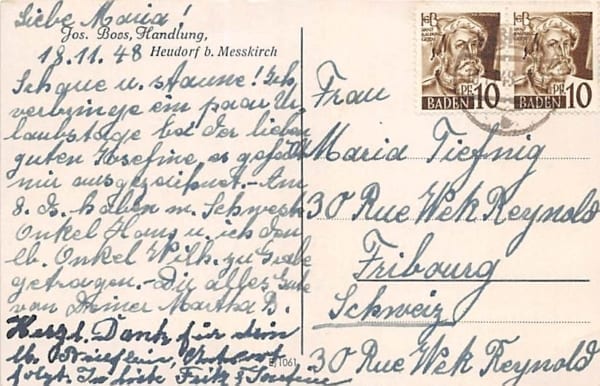 Liebe Maria!
Jos. Boos, Handlung,
Heudorf b. Messkirch
18.11.48
Schaue u. staune! Ich
verbringe ein paar Ur
laubstage bei der lieben
guten Josefine, es gefällt
mir ausgezeichnet. - Am
8. ds. haben m. Schwest.
Onkel Hans u. ich den
lb. Onkel Wilh. zu Grabe
getragen. - Dir alles Gute
von Deiner Martha B.
Herzl. Dank für dein
lb. Brieflein, Antwort
folgt. In Liebe Fritz & Josefine
E/1061
BADEN 10 PF
BADEN 10 PF
Frau
Maria Tiefnig
30 Rue Wek Reynold
Fribourg
Schweiz
30 Rue Wek Reynold